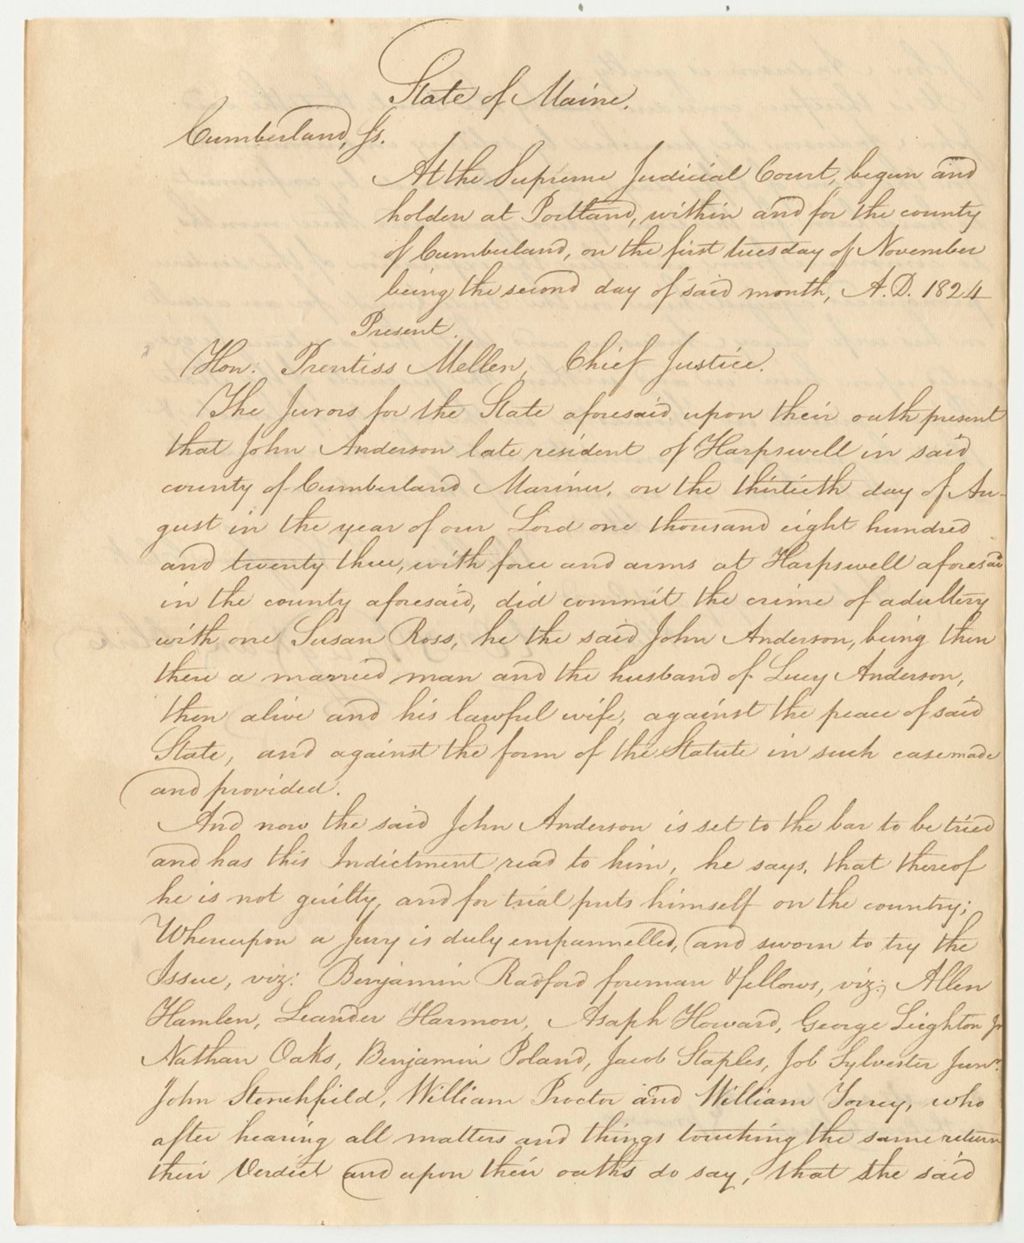 State of Maine.
Cumberland, Ss.
At the Supreme Judicial Court, begun and
holden at Portland, within and for the county
of Cumberland, on the first tuesday of November
being the second day of said month, A.D. 1824
Present.
Hon. Prentiss Mellen, Chief Justice.
The Jurors for the State aforesaid upon their oath present
that John Anderson late resident of Harpswell in said
county of Cumberland Mariner, on the thirtieth day of Au-
gust in the year of our Lord one thousand eight hundred
and twenty three, with force and arms at Harpswell aforesaid
in the county aforesaid, did commit the crime of adultery
with one Susan Ross, he the said John Anderson, being then
there a married man and the husband of Lucy Anderson,
then alive and his lawful wife, against the peace of said
State, and against the form of the Statute in such case made
and provided.
And now the said John Anderson is set to the bar to be tried
and has this Indictment read to him, he says, that thereof
he is not guilty, and for trial puts himself on the country;
Whereupon a Jury is duly empannelled, and sworn to try the
Issue, viz: Benjamin Radford foreman & fellows, viz; Allen
Hamlen, Leander Harmon, Asaph Howard, George Leighton Jr
Nathan Oaks, Benjamin Poland, Jacob Staples, Job Sylvester Junr.
John Stenchfield, William Proctor and William Torrey, who
after hearing all matters and things touching the same return
their Verdict and upon their oaths do say, that the said